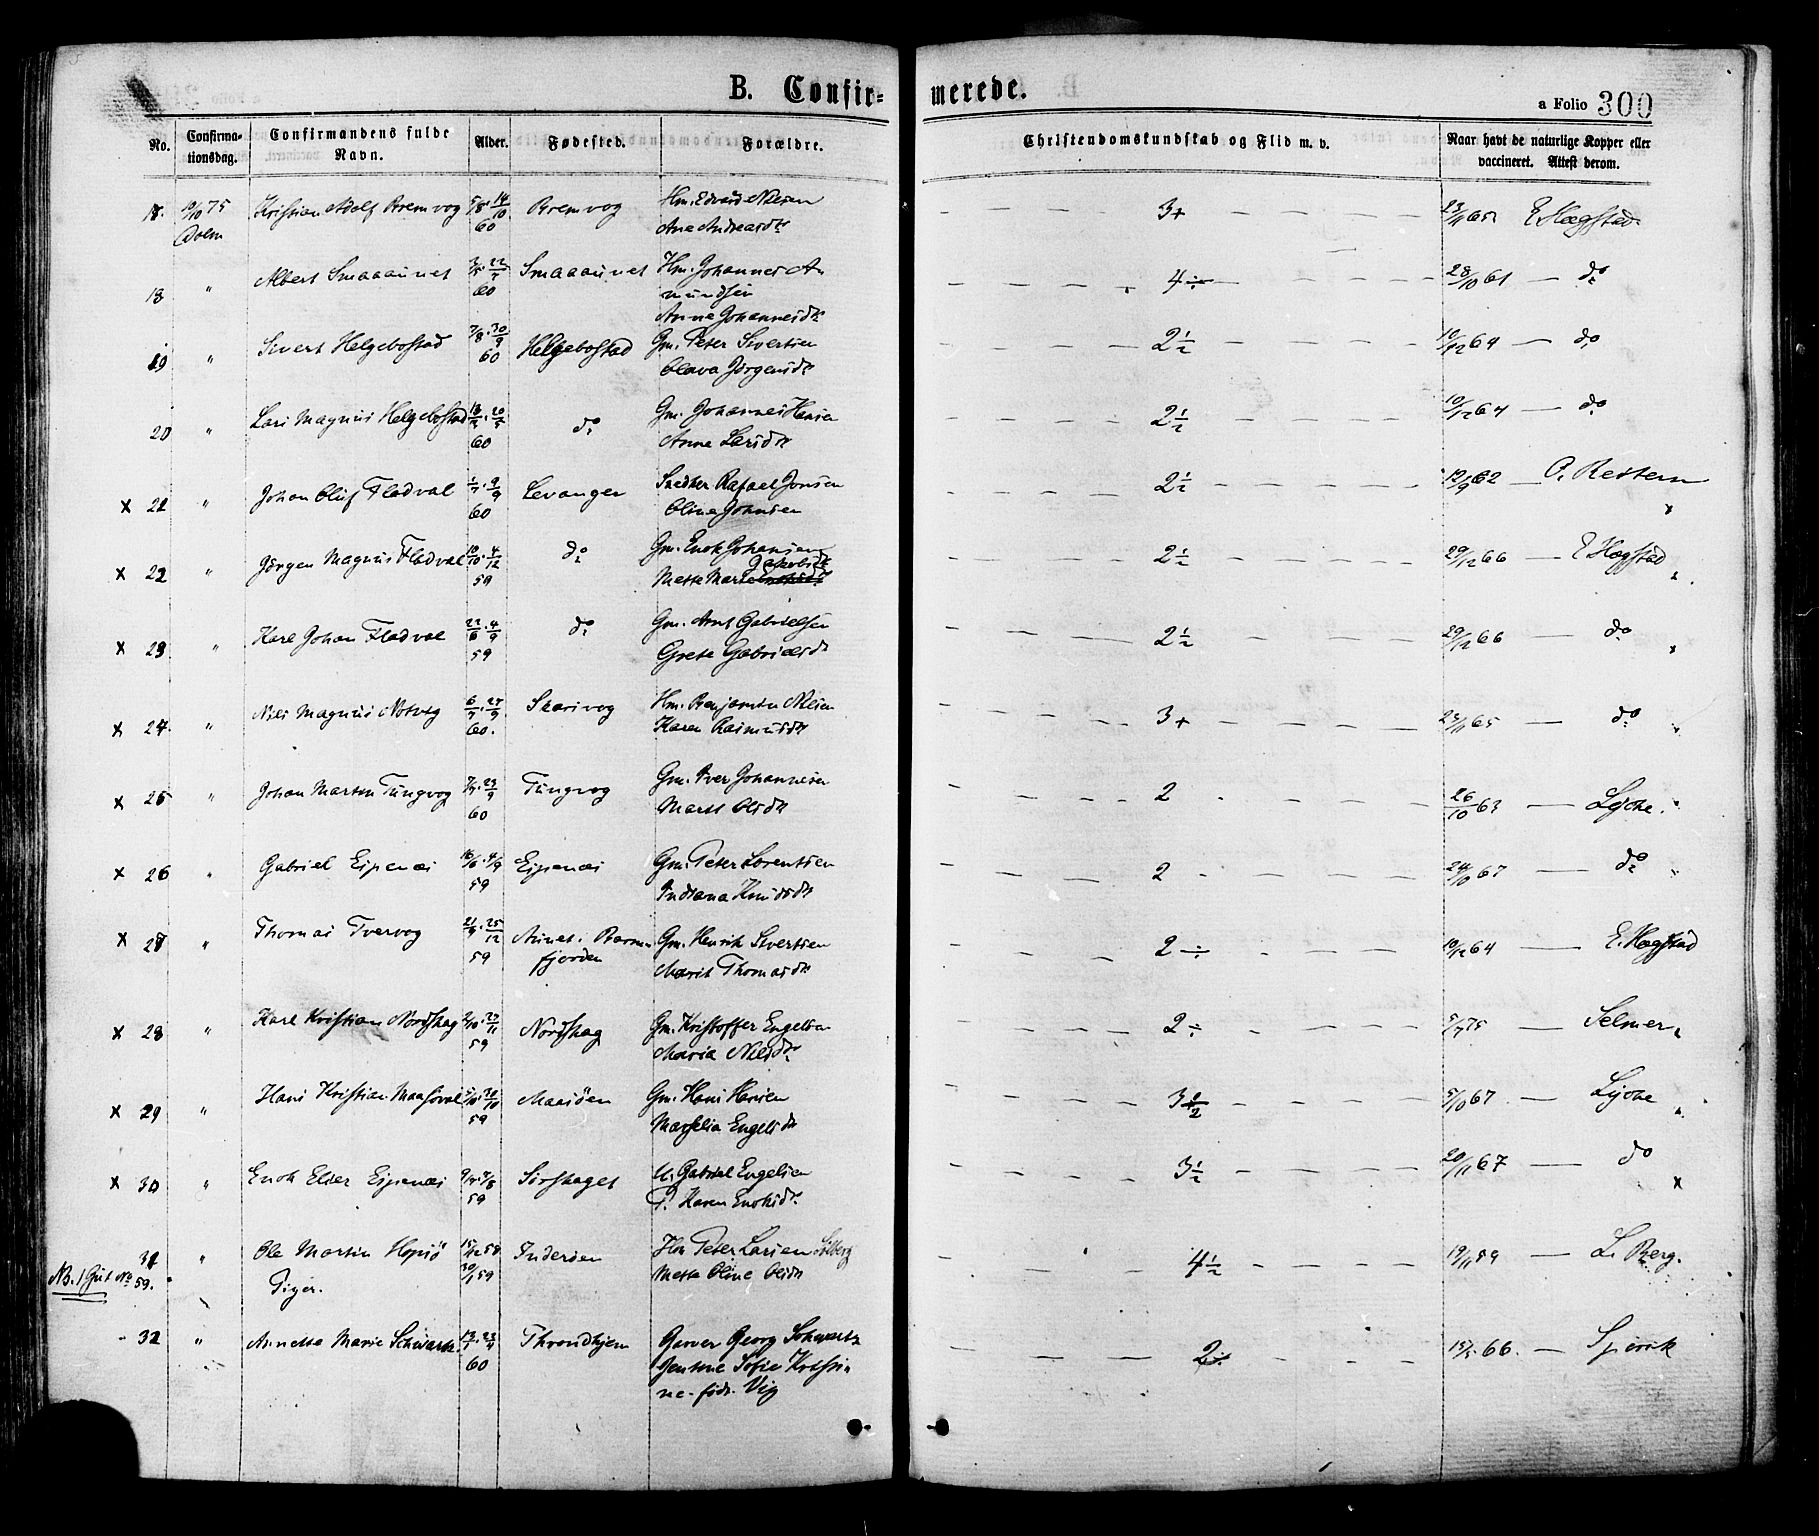 B. Confir-
merede.
a Folio 300
No.
Confirma-
tionsdag.
Confirmandens fulde
Navn.
Alder.
Fødested.
Forældre.
Christendomskundskab og Flid m. v.
Naar havt de naturlige Kopper eller
vaccineret. Attest derom.
10/10 75 Kristian Adolf Bremvog 5/8 . 14/10 Bremvog Hm. Edvard Nilsen
3+ 23/11 65 E. Hægstad
Dolm 60 Ane Andreasdt
18 " Albert Smaaaunet 60 Smaaaunet Hm. Johannes A
mundsen
Anne Johannesdt
4÷ 28/10 61 — do
19 " Sivert Helgebostad 7/8 . 30/9 60 Helgebostad Gm. Peter Sivertsen
Olava Jørgensdt
2½ 10/12 64 — do
20 " Lars Magnus Helgebostad 60 do Gm. Johannes Hansen
Anne Larsdt
2½ 10/12 64 — do
x 21 " Johan Oluf Fladval 9/9 60 Levanger Rafael Jonsen
Oline Johnsen
2½ 12/9 62 — Restern
x 22 " Jørgen Magnus Fladval 10/10 . 4/12 59 do Gm. Enok Johansen
Jakobsdt
Mette Marie
2½ 29/12 66 — E Hægstad
x 23 " Karl Johan Fladval 22/6 . 4/9 59 do Gm. Arnt Gabrielsen
Grete Gabrielsdt
2½ 29/12 66 — do
x 24 " Nils Magnus Notvig 27/9 60. Skarsvog Hm. Benjamin Nilsen
Karen Rasmusdt
3+ 23/11 65 — do
x 25 " Johan Martin Tungvog 23/9 60 Tungvog Gm. Iver Johannesen
Marit Olsdt
2 26/10 63 — Lysche
x 26 " Gabriel Espenæs 16/6 . 4/9 59 Espenæs Gm. Peter Lorentsen
Indiana Knudsdt
2 24/10 67 — do
x 27 " Thomas Tvervog 21/9 . 25/12 59 Aunet i Barm
fjorden
Gm. Henrik Sivertsen
Marit Thomasdt
2÷ 10/12 64 — E. Hægstad
x 28 " Karl Kristian Nordskag 2/10 . 27/11 59 Nordskag Gm. Kristoffer Engelsen
Maria Nilsdt
2÷ 5/7 75 — Selmer
x 29 " Hans Kristian Maasøval 59 Maasøen Gm. Hans Hansen
Marselia Engelsdt
3½ 5/10 67 — Lysche
x 30 " Enok Elier Espenæs 59 Sørskaget U. Gabriel Engelsen
P. Karen Enoksdt.
3½ 20/11 67 — do
31 " Ole Martin Hopsø 15/12 58 30/1 59 Inderøen Hm Peter Larsen Solberg
Mette Oline Olsdt
4½ 19/11 59 — L. Berg.
NB. 1 Gut No 59.
Piger.
32 " Annette Marie Schwartz 13/1 . 23/4 60 Throndhjem Garver Georg Schwartz
Jentine Sofie Kristi-
ne født Vig
2÷ 66. —